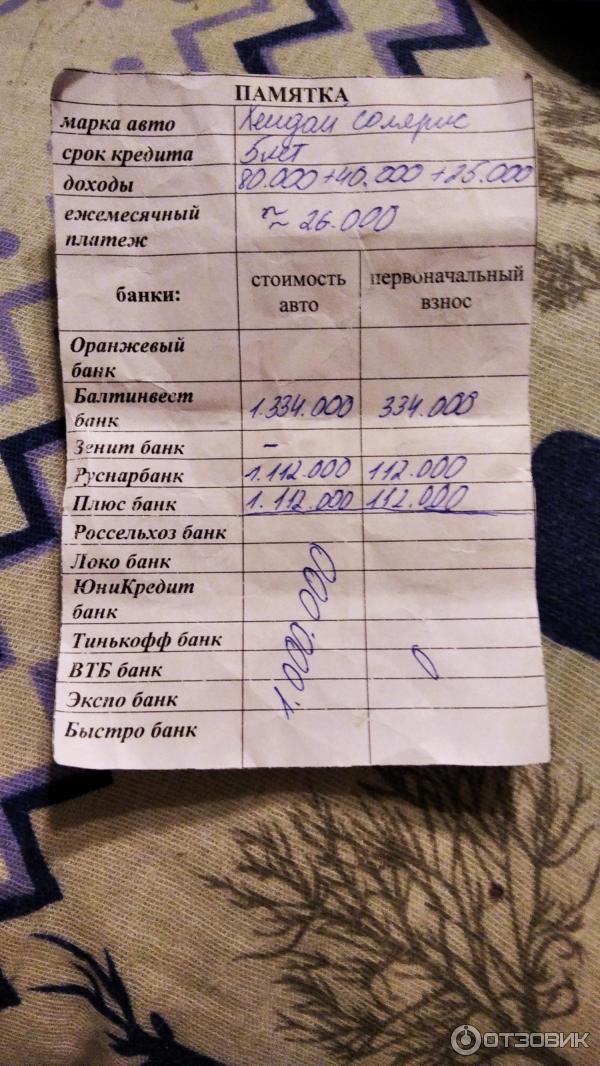 ПАМЯТКА
марка авто Хендай Солярис
срок кредита 5 лет
доходы 80.000+40.000+25.000
ежемесячный
платеж ≈ 26.000
банки: стоимость авто первоначальный взнос
Оранжевый
банк
Балтинвест
банк 1.334.000 334.000
Зенит банк –
Руснарбанк 1.112.000 112.000
Плюс банк 1.112.000 112.000
Россельхоз банк
Локо банк
ЮниКредит
банк
Тинькофф банк
ВТБ банк
Экспо банк
Быстро банк
1.000.000
0
ОТЗОВИК